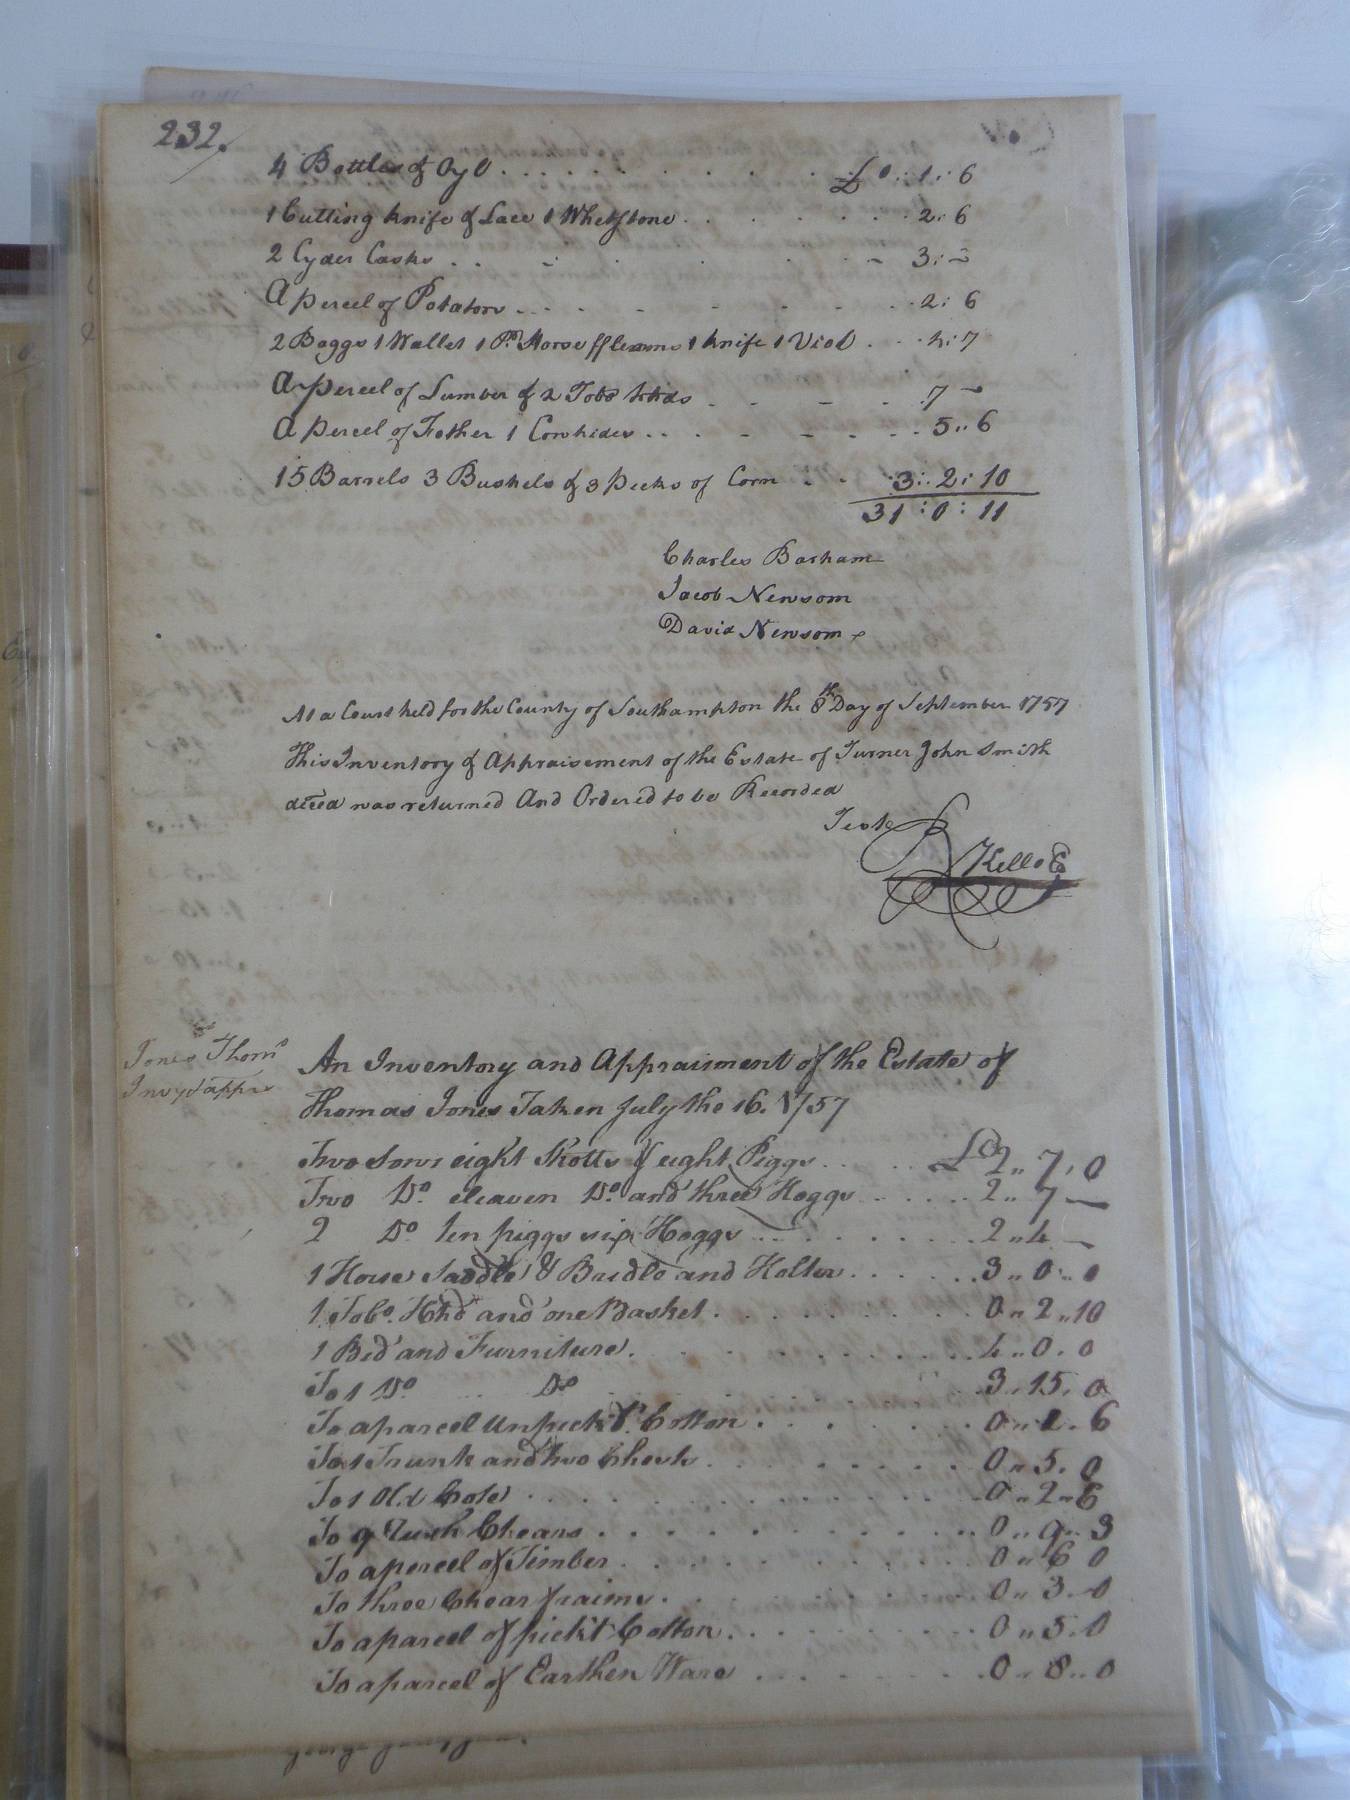 232.
4 Bottles & Oyl . . . . . . . £0 : 1 : 6
1 Cutting knife & Lace 1 Whetstone . . . . . 2 : 6
2 Cyder Casks . . . . . 3 : -
A percel of Potators . . . . . 2 : 6
2 Baggs 1 Wallet 1 Pr. Horse fflemms 1 knife 1 Viol . . . 4 : 7
A percel of Lumber & 2 Tobo hhds . . . . 7 -
A percel of Fether 1 Cowhider . . . . . 5 " 6
15 Barrels 3 Bushels & 3 pecks of Corn . . 3 : 2 : 10
31 : 0 : 11
Charles Barham
Jacob Newsom
David Newsom
At a Court held for the County of Southampton the 8th Day of September 1757
This Inventory & Appraisement of the Estate of Turner John Smith
deced was returned And Ordered to be Recorded
Teste
Kello
Jones Thoms
Invy & appr
An Inventory and Appraisment of the Estate of
Thomas Jones Taken July the 16. 1757
Two Sows eight Shotts & eight Piggs . . . . £2 " 7 , 0
Two Do. eleaven Do. and three Hoggs . . . . 2 " 7 —
2 Do ten piggs six Hoggs . . . . . 2 " 4 —
1 Horse Saddle & Bridle and Holter . . . . . 3 " 0 " 0
1 Tobo. Hhd and one Basket . . . . . 0 " 2 " 10
1 Bed and Furniture . . . . . 4 " 0 . 0
To 1 Do Do . . . . . 3 . 15 . 0
To a parcel unpickt Cotton . . . . . 0 " 2 . 6
To 1 Trunk and two Chests . . . . . 0 " 5 . 0
To 1 Old Cote . . . . . 0 " 2 " 6
To 9 Rush Chears . . . . . 0 " 9 " 3
To a percel of Timber . . . . . 0 " 6 0
To three Chear fraims . . . . . 0 " 3 . 0
To a parcel of pickt Cotton . . . . . 0 " 5 . 0
To a parcel of Earthen Ware . . . . . 0 " 8 " 0